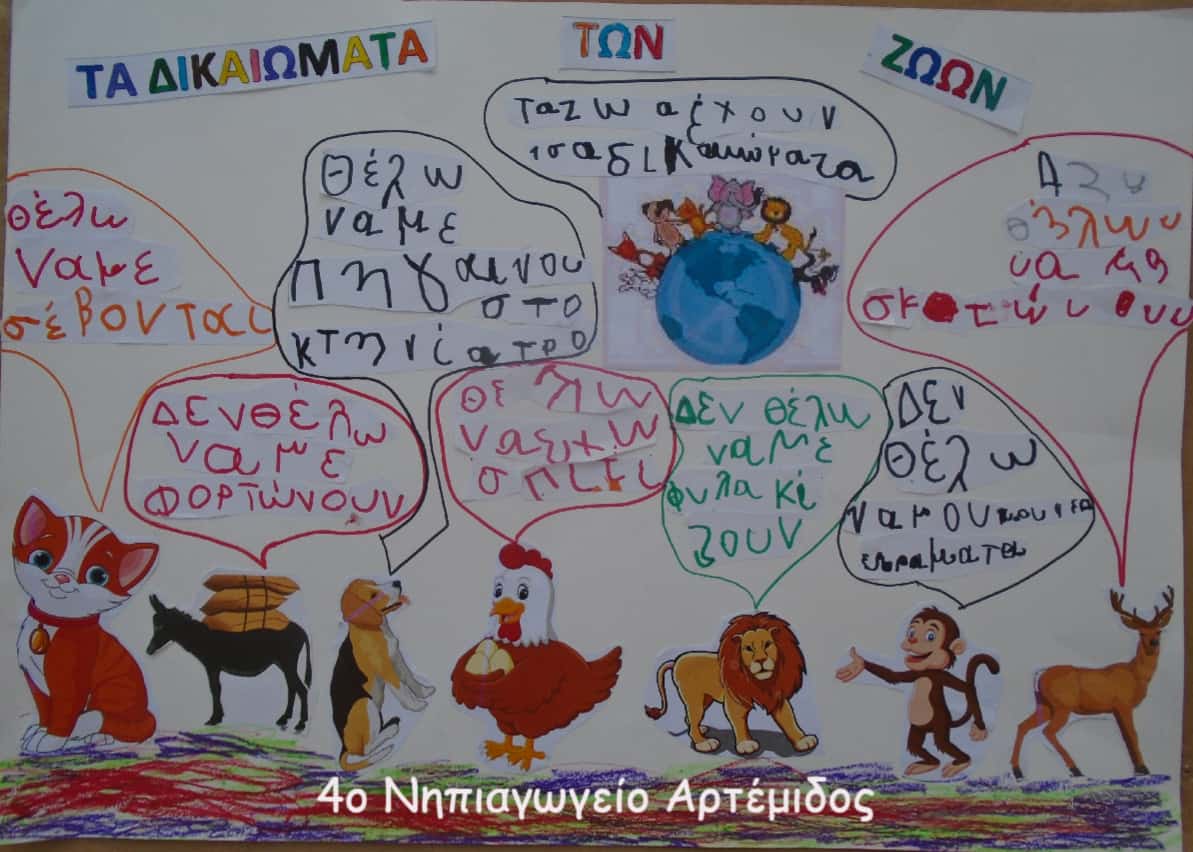 ΤΑ ΔΙΚΑΙΩΜΑΤΑ ΤΩΝ ΖΩΩΝ
τα ζωα έχουν
ισα δικαιώματα
θέλω
να με
σέβονται
Θέλω
να με
πηγαίνου
στο
κτηνίατρο
ΔΕΝ θέλω
να με
ΦΟΡΤώνουν
θελω
να εχω
σπιτι
ΔΕΝ θέλω
να με
φυλακί
ζουν
Δεν
θέλω
να μου κουν
πειραματα
να μη
σκοτώνουν
4ο Νηπιαγωγείο Αρτέμιδος